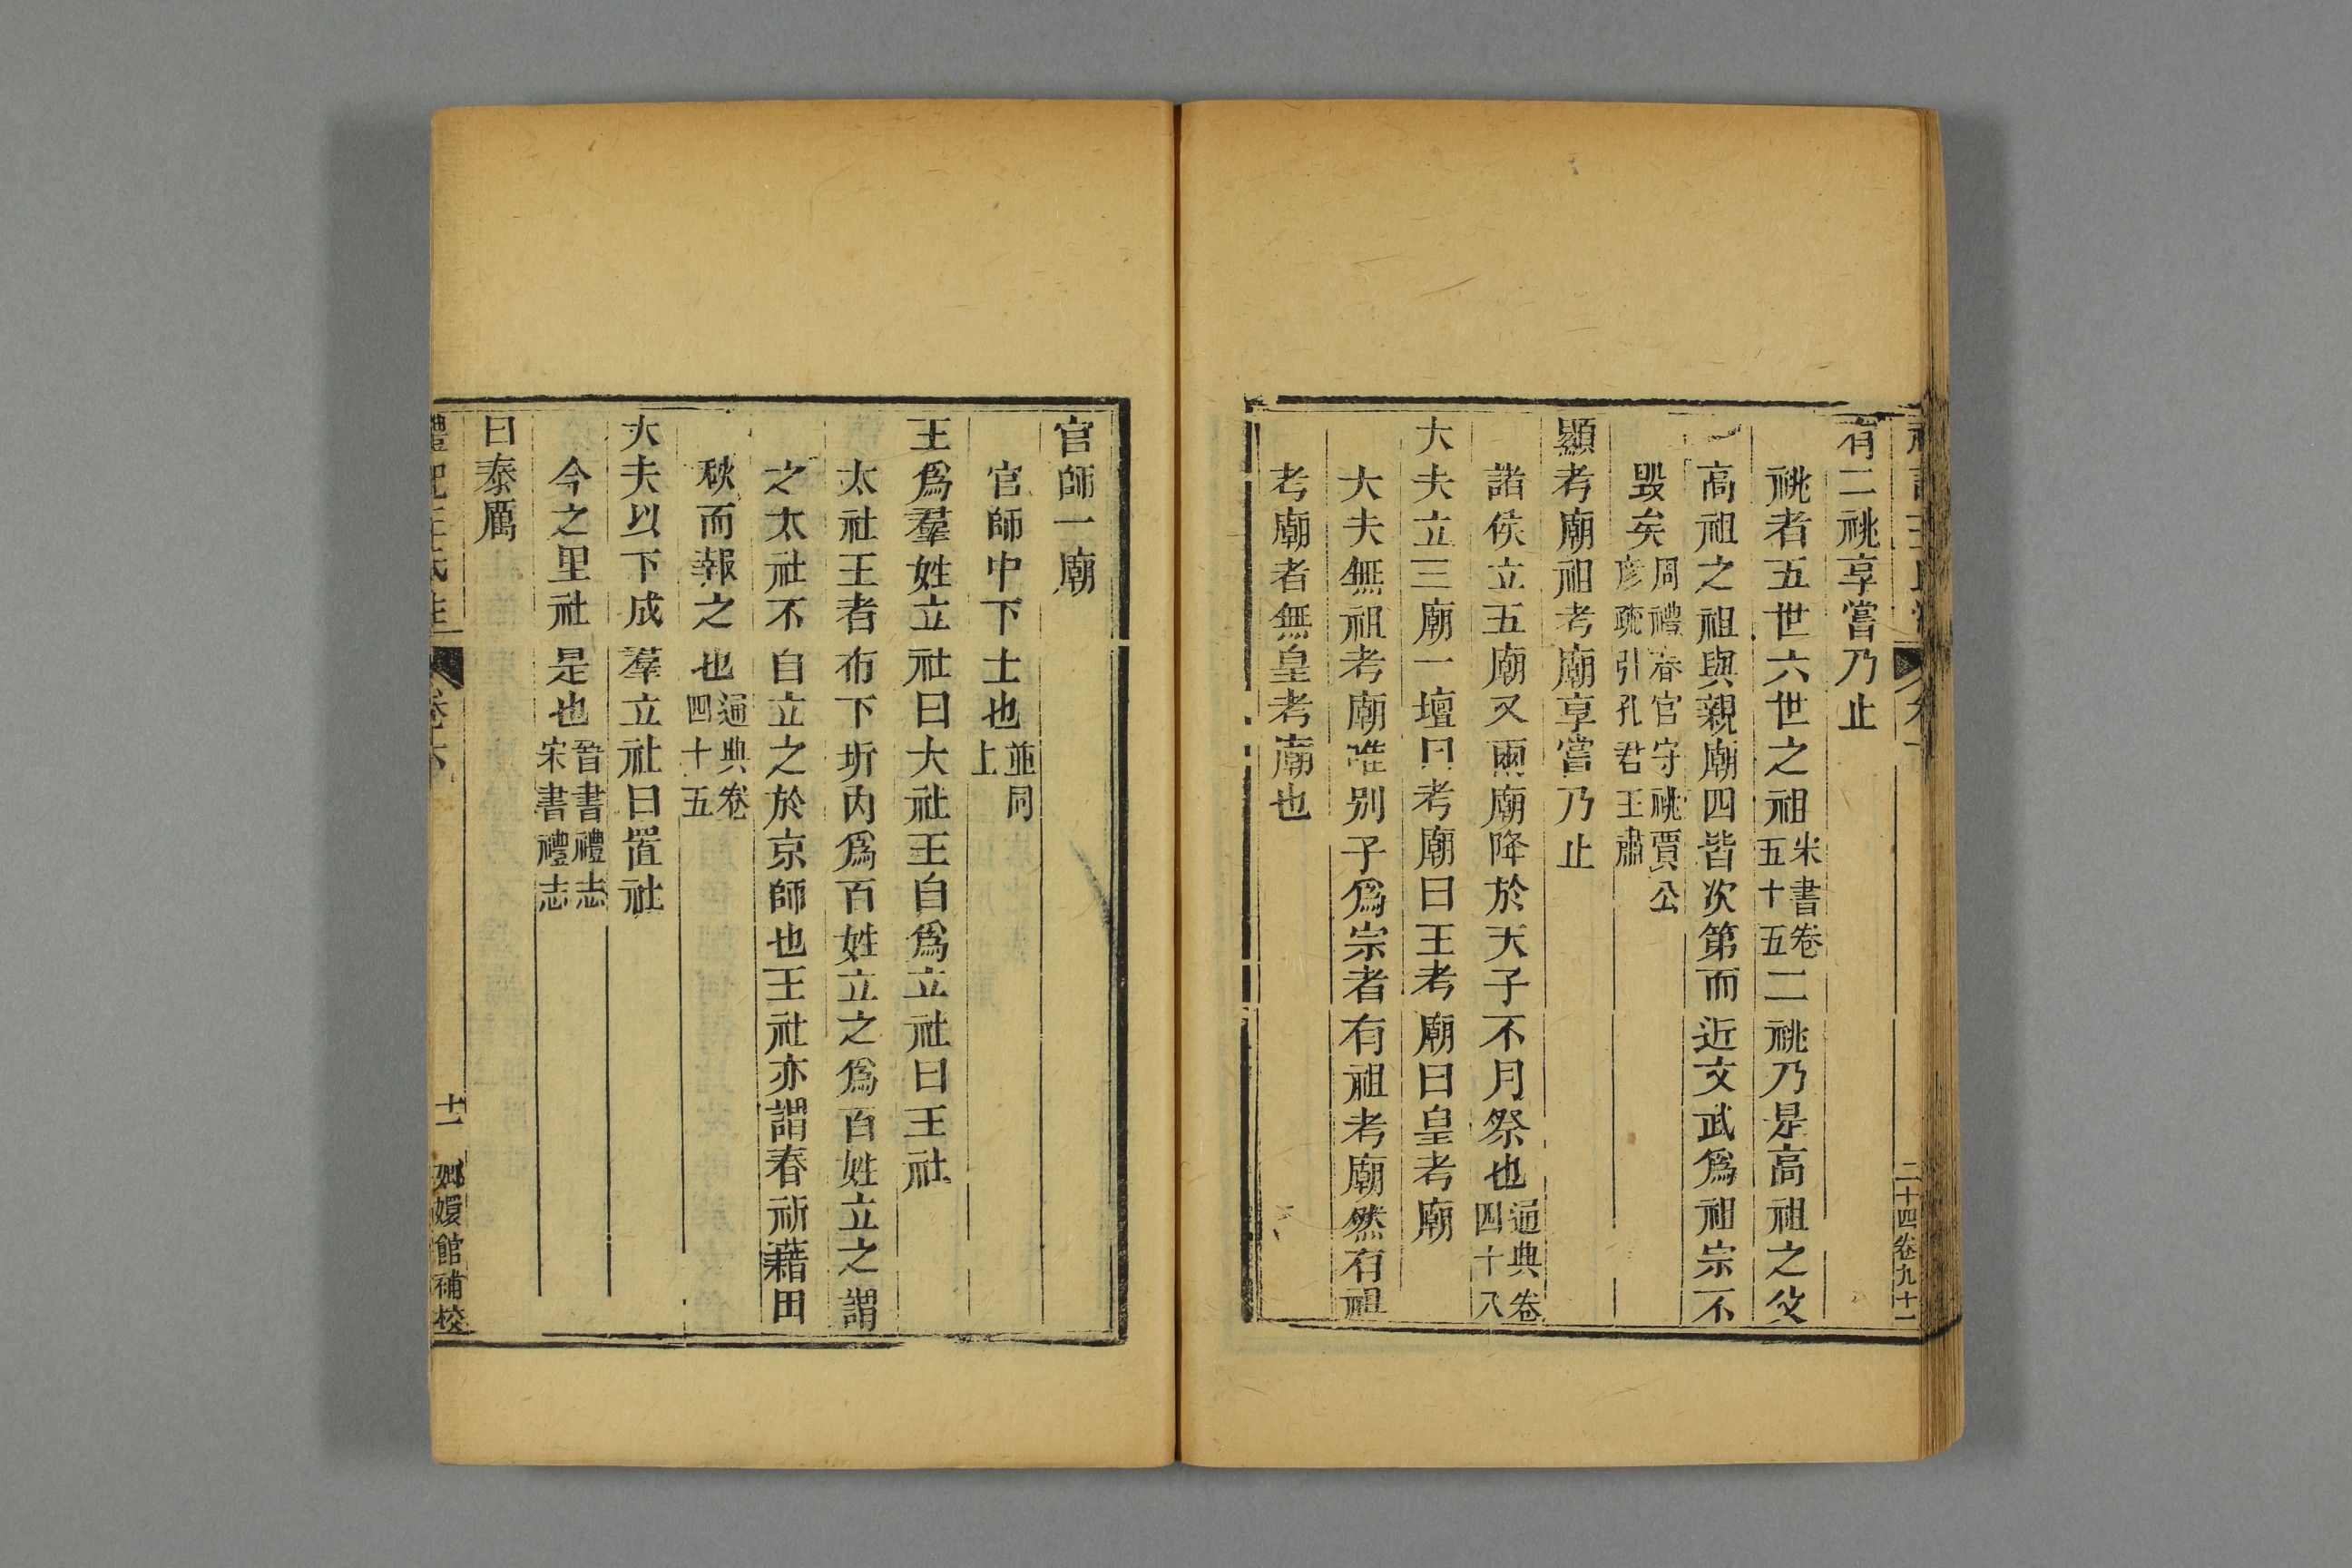 有二祧享嘗乃止
祧者五世六世之祖宋書卷五十五二祧乃是高祖之父
高祖之祖與親廟四皆次第而近文武爲祖宗不
毀矣周禮春官守祧賈公彥疏引孔君王肅
顯考廟祖考廟享嘗乃止
諸侯立五廟又兩廟降於天子不月祭也通典卷四十八
大夫立三廟一壇曰考廟曰王考廟曰皇考廟
大夫無祖考廟唯別子爲宗者有祖考廟然有祖
考廟者無皇考廟也
二十四卷九十一
官師一廟
官師中下士也並同上
王爲羣姓立社曰大社王自爲立社曰王社
太社王者布下圻內爲百姓立之爲百姓立之謂
之太社不自立之於京師也王社亦謂春祈藉田
秋而報之也通典卷四十五
大夫以下成羣立社曰置社
今之里社是也晉書禮志宋書禮志
曰泰厲
禮記王氏注 卷六 十一 嫏嬛館補校